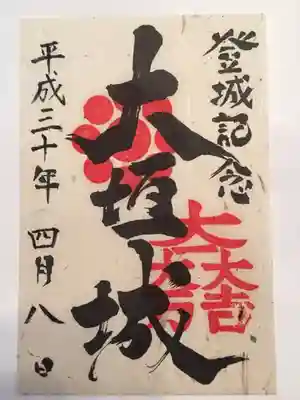 登城記念
大垣城
大一大万大吉
平成三十年 四月八日